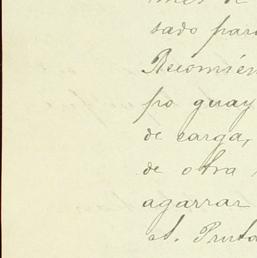 mes de
sado para
Recomien
po guay
de carga,
de otra
agarrar
st. Pruta